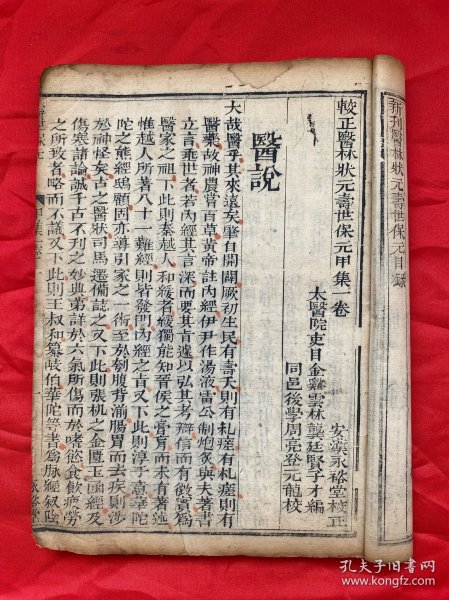 新刊醫林狀元壽世保元目錄
較正醫林狀元壽世保元甲集一卷
安溪永裕堂校正
太醫院吏目金谿雲林龔廷賢子才編
同邑後學周亮登元龍校
醫說
大哉醫乎其來遠矣肇自開闢厥初生民有壽夭則有札瘥有札瘥則有
醫藥故神農嘗百草黃帝註內經伊尹作湯液雷公制炮炙與夫著書
立言垂世者若內經其言深而要其旨邃以弘其考辯信而有徵實為
醫家之祖下此則秦越人和緩者緩獨能知晉侯之膏肓而未有著述
惟越人所著八十一難經則皆發明內經之旨又下此則淳于意華陀
陀之熊經鴟顧固亦導引家之一術至於刳腹背湔腸胃而去疾則涉
於神怪矣古之醫狀司馬遷備誌之又下此則張机之金匱玉函經及
傷寒諸論誠千古不刊之典第詳於六氣所傷而於嗜慾食飲疲勞
之所致者略而不議又下此則王叔和纂岐伯華陀等書為脉經叙陰
孔夫子旧书网
http://www.kongfz.com